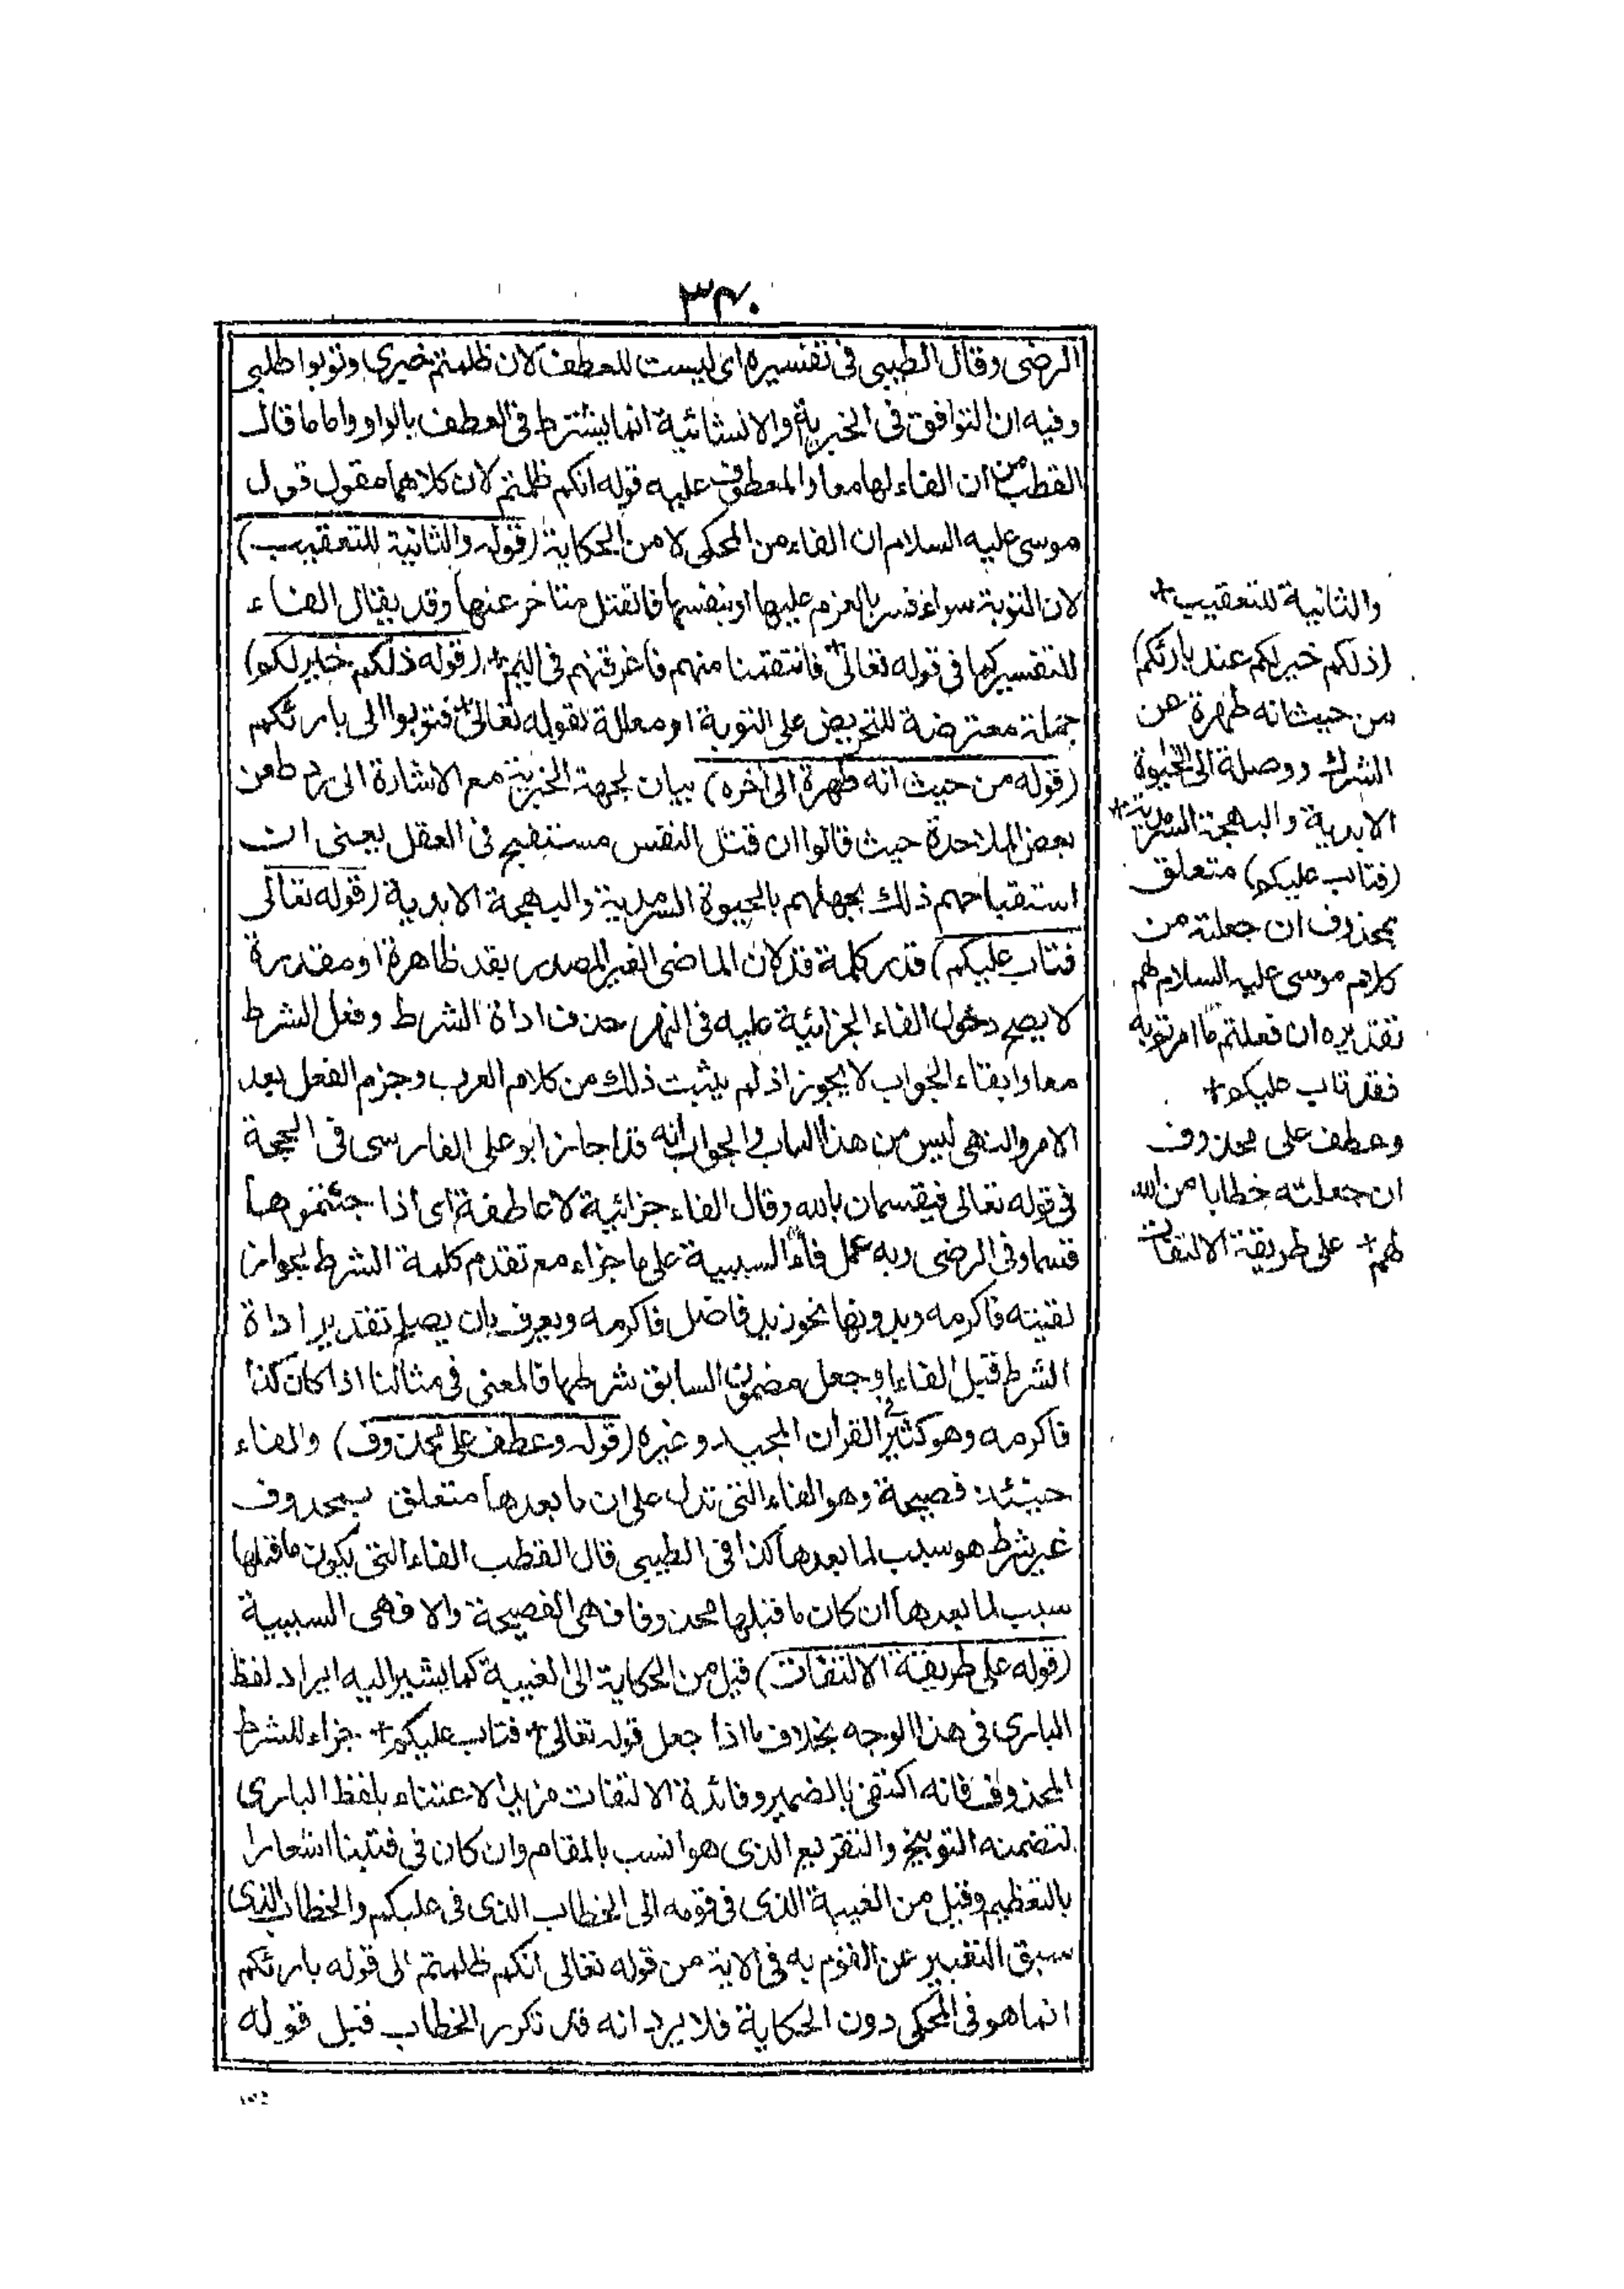 ٣٤٠
الرضى وقال الطيبى فى تفسيره اى ليست للعطف لان ظلمتم خبرى وتوبوا طلبى
وفيه ان التوافق فى الخبرية والانشائية انما يشترط فى العطف بالواو واما ما قال
القطب من ان الفاء لها معا والمعطوف عليه قوله انكم ظلمتم لان كلاهما مقول قول
موسى عليه السلام ان الفاء من المحكى لا من الحكاية (قوله والثانية للتعقيب)
لان التوبة سواء فسر بالعزم عليها او بنفسها فالقتل متاخر عنها وقد يقال الفاء
للتفسير كما فى قوله تعالى* فانتقمنا منهم فاغرقنهم فى اليم* (قوله ذلكم خير لكم)
جملة معترضة للتحريض على التوبة او معللة لقوله تعالى* فتوبوا الى بارئكم
(قوله من حيث انه طهرة الى آخره) بيان لجهة الخيرية مع الاشارة الى رد طعن
بعض الملاحدة حيث قالوا ان قتل النفس مستقبح فى العقل يعنى ان
استقباحهم ذلك بجهلهم بالحيوة السرمدية والبهجة الابدية (قوله تعالى
فتاب عليكم) قدر كلمة قد لان الماضى الغير المصدر بقد ظاهرة او مقدرة
لا يصح دخول الفاء الجزائية عليه فى النهر حذف اداة الشرط وفعل الشرط
معا وابقاء الجواب لا يجوز اذ لم يثبت ذلك من كلام العرب وجزم الفعل بعد
الامر والنهى ليس من هذا الباب والجواب انه قد اجاز ابو على الفارسى فى الحجة
فى قوله تعالى فيقسمان بالله وقال الفاء جزائية لا عاطفة اى اذا
قسما وفى الرضى وبه عمل فاء السببية على ما جزاء مع تقدم كلمة الشرط نحو ان
لقيته فاكرمه وبدونها نحو زيد فاضل فاكرمه ويعرف بان يصلح تقدير اداة
الشرط قبل الفاء وجعل مضمون السابق شرطها فالمعنى فى مثالنا اذا كان كذا
فاكرمه وهو كثير فى القرآن المجيد وغيره (قوله وعطف على محذوف) والفاء
حينئذ فصيحة وهو الفاء التى تدل على ان ما بعدها متعلق بمحذوف
غير شرط هو سبب لما بعدها كذا فى الطيبى قال القطب الفاء التى يكون ما قبلها
سبب لما بعدها ان كان ما قبلها محذوفا فهى الفصيحة والا فهى السببية
(قوله على طريقة الالتفات) قيل من الحكاية الى الغيبة كما يشير اليه ايراد لفظ
البارى فى هذا الوجه بخلاف ما اذا جعل قوله تعالى* فتاب عليكم* جزاء للشرط
المحذوف فانه اكتفى بالضمير وفائدة الالتفات مزيد الاعتناء بلفظ البارى
لتضمنه التوبيخ والتقريع الذى هو انسب بالمقام وان كان فى اشعارا
بالتعظيم وقيل من الغيبة الذى فى قومه الى الخطاب الذى فى عليكم والخطاب الذى
سبق التعبير عن القوم به فى الاية من قوله تعالى انكم ظلمتم الى قوله بارئكم
انما هو فى المحكى دون الحكاية فلا يرد انه قد تكرر الخطاب قبل قوله
والثانية للتعقيب*
(ذلكم خير لكم عند بارئكم)
من حيث انه طهرة عن
الشرك ووصلة الى الحيوة
الابدية والبهجة السرمدية*
(فتاب عليكم) متعلق
بمحذوف ان جعلته من
كلام موسى عليه السلام لهم
تقديره ان فعلتم ما امرتم به
فقد تاب عليكم*
وعطف على محذوف
ان جعلته خطابا من الله
لهم* على طريقة الالتفات